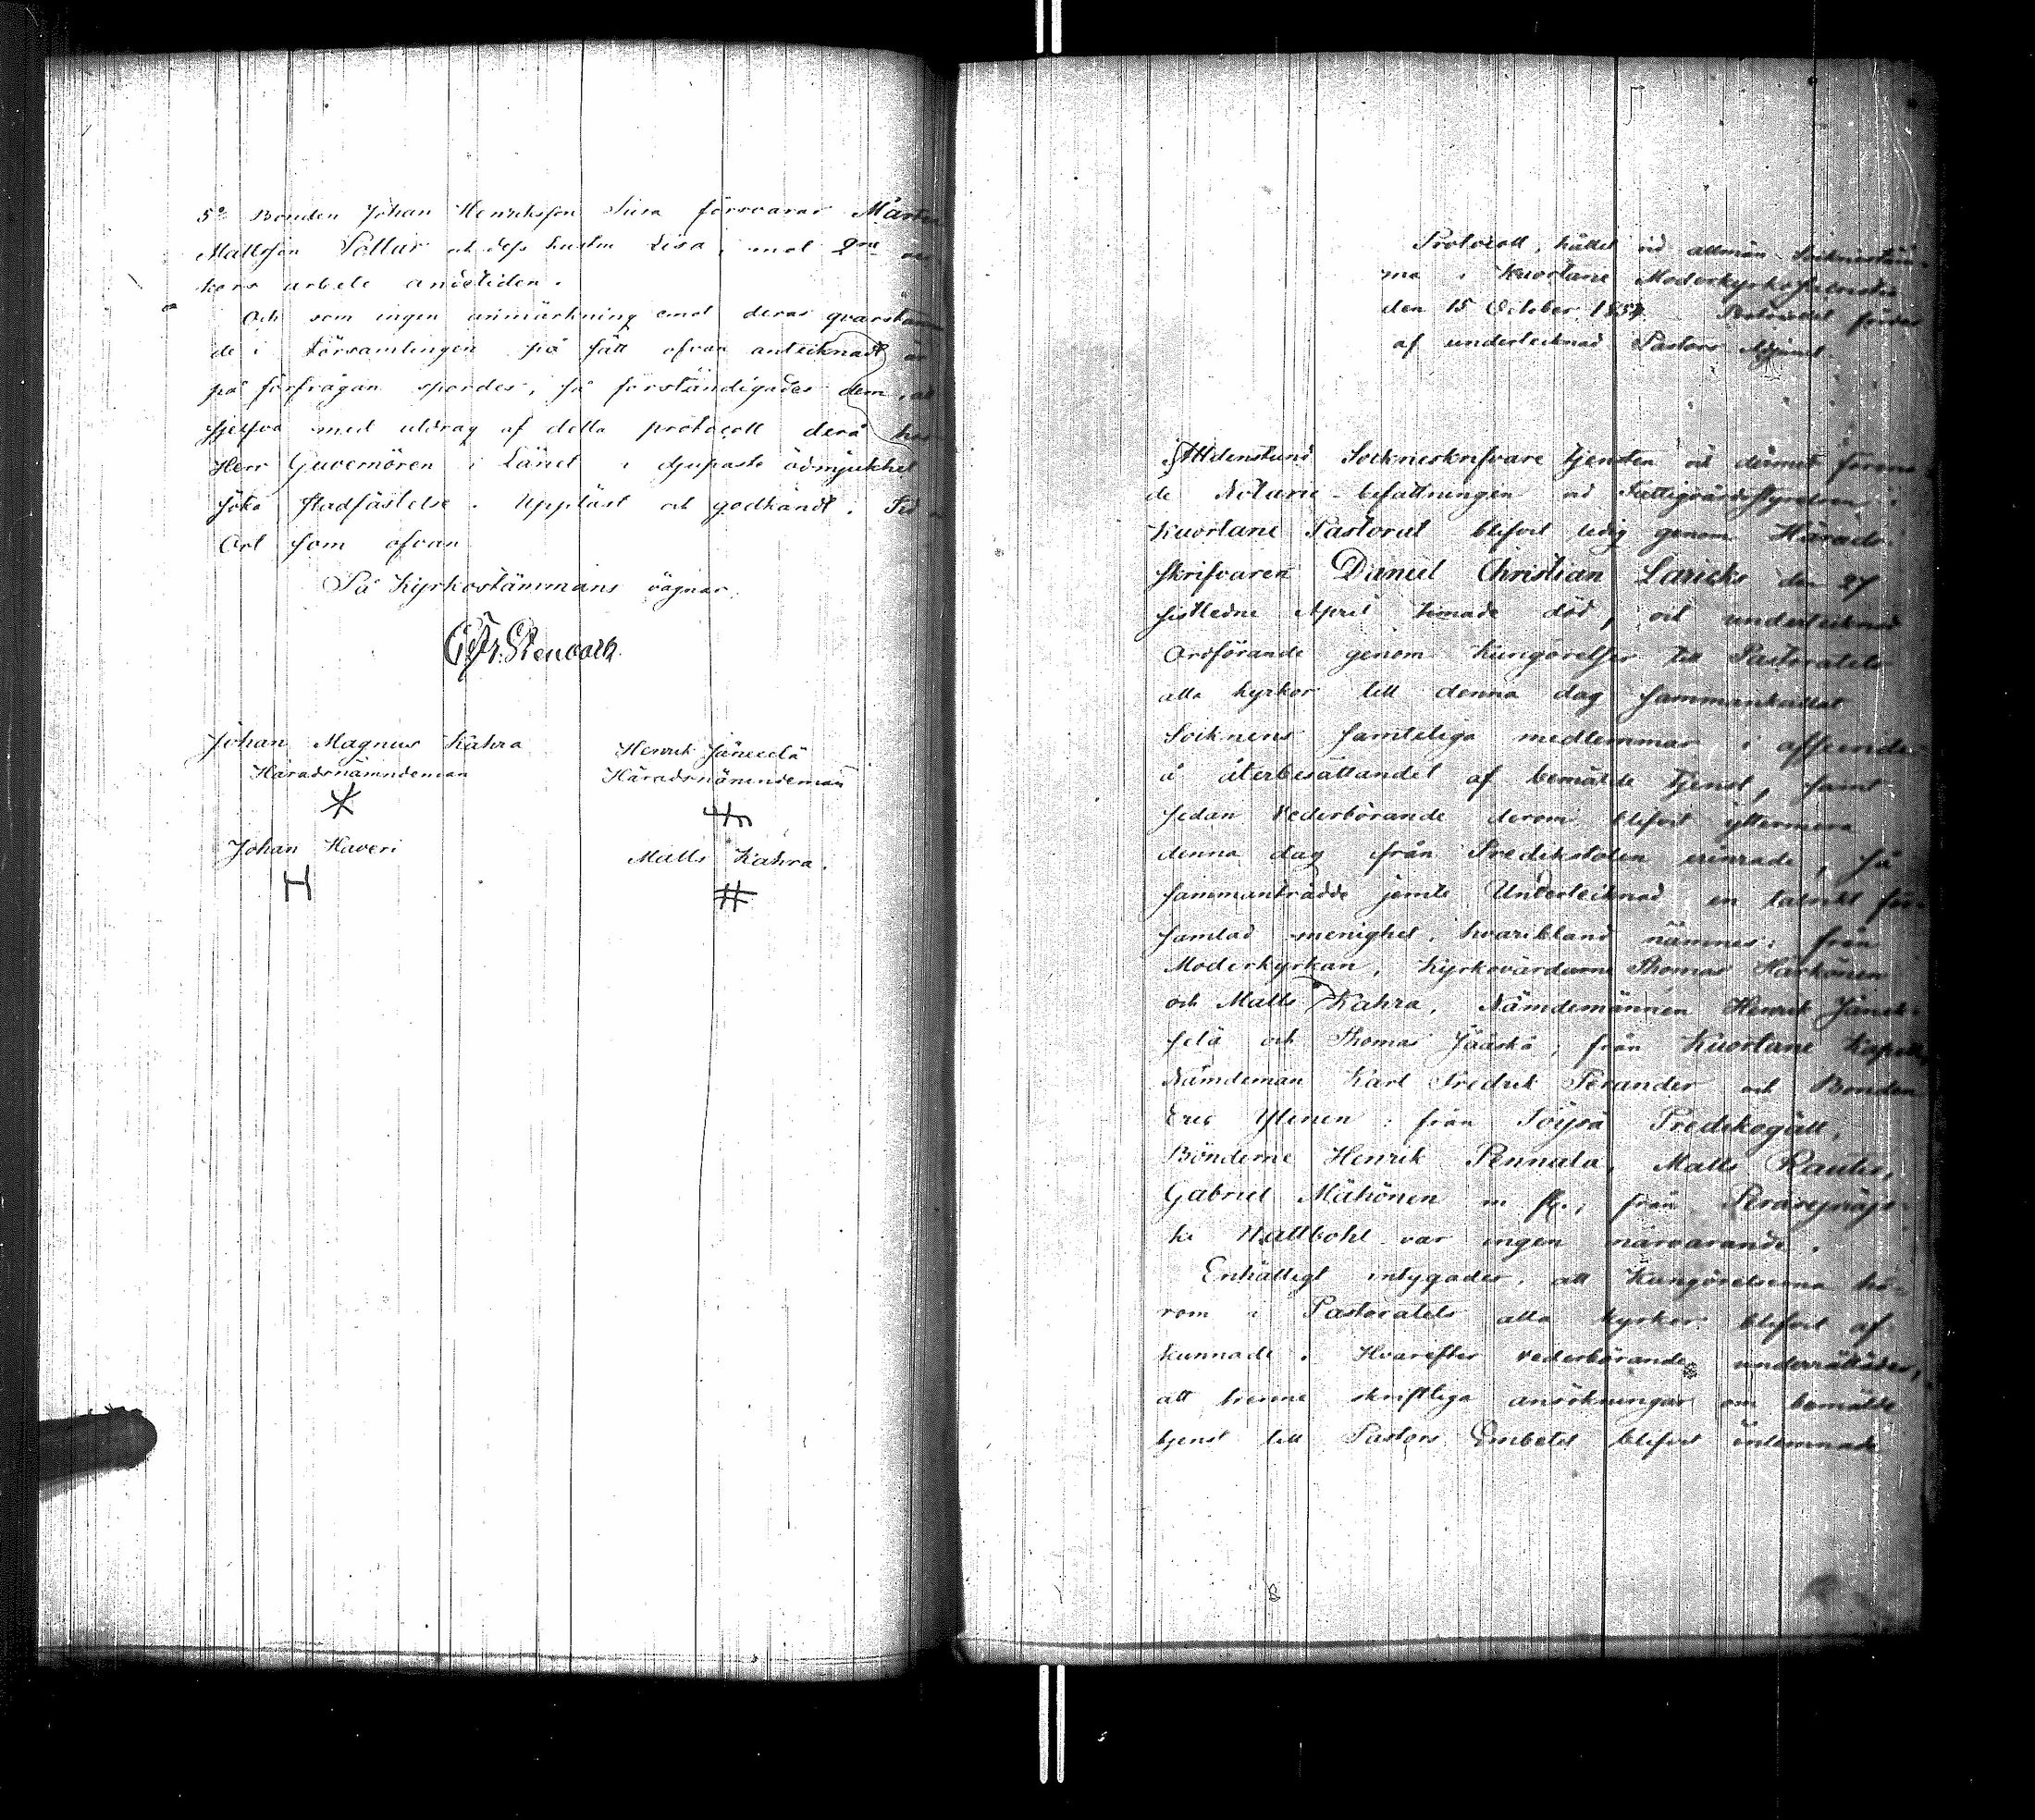 5o Bonden Johan Henriksson Sura försvarar Mårten
Mattsson Pollari och dess hustru Lisa, mot 2ne vec-
kors arbete andetiden.
Och som ingen anmärkning emot deras qvarstan-
de i Församlingen på sätt ofvan antecknadt är
på förfrågan spordes, så förständigades dem, att
sjelfva med utdrag af detta protocoll derå hos
Herr Guvernören i Länet i djupaste ödmjukhet
söka stadfästelse. Uppläst och godkändt. Tid
Ort som ofvan
På Kyrkostämmans vägnar.
C Fr. Stenbäck.
Johan Magnus Kahra
Häradsnämndeman
Henrik Jänesselä
Häradsnämndeman
Johan Haveri
Matts Kahra.
Protocoll, hållet vid allmän Sockenstäm-
ma i Kuortane Moderkyrkos Sacristia
den 15 October 1854. Protocollet fördes
af undertecknad Pastors Adjunct.
Alldenstund Sockneskrifvare tjensten och dermed förena-
de Notarie-befattningen vid Fattigvårdsstyrelsen i
Kuortane Pastorat blifvit ledig genom Härads-
skrifvaren Daniel Christian den 27
sistledne April timade död, och undertecknad
Ordförande genom Kungörelser till Pastoratets
alla kyrkor till denna dag sammankallat
Socknens samteliga medlemmar i afseende
å återbesättandet af bemälde tjenst, samt
sedan Vederbörande derom blifvit yttermera
denna dag från Predikstolen erinrade, så
sammanträdde jemte Undertecknad en talrikt för-
samlad menighet, hvaribland nämnes: från
Moderkyrkan, Kyrkovärdarne Thomas Harkönen
och Matts Kahra, Nämdemännen Henrik Jänes-
selä och Thomas Jääskä, från Kuortane Kapell,
Nämdeman Karl Fredrik Terander och Bonden
Eric Ylinen: från Töysä Predikogäll,
Bönderne Henrik Pennala, Matts Rautio,
Gabriel Mähönen m fl.; från Peräseinäjo-
ki Kallbohl var ingen närvarande.
Enhälligt intygades, att Kungörelserna hä-
rom i Pastoratets alla kyrkor blifvit af-
kunnade. Hvarefter vederbörande underrättades,
att trenne skriftliga ansökningar om bemälde
tjenst till Pastors Embetet blifvit inlemnade